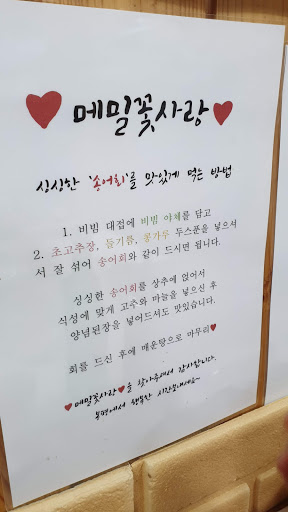 ♥메밀꽃사랑♥
싱싱한 '송어회'를 맛있게 먹는 방법
1. 비빔 대접에 비빔 야채를 담고
2. 초고추장, 들기름, 콩가루 두스푼을 넣으셔
서 잘 섞어 송어회와 같이 드시면 됩니다.
싱싱한 송어회를 상추에 얹어서
식성에 맞게 고추와 마늘을 넣으신 후
양념된장을 넣어드셔도 맛있습니다.
회를 드신 후에 매운탕으로 마무리♥
♥메밀꽃사랑♥을 찾아주셔서 감사합니다.
봉평에서 행복한 시간보내세요~